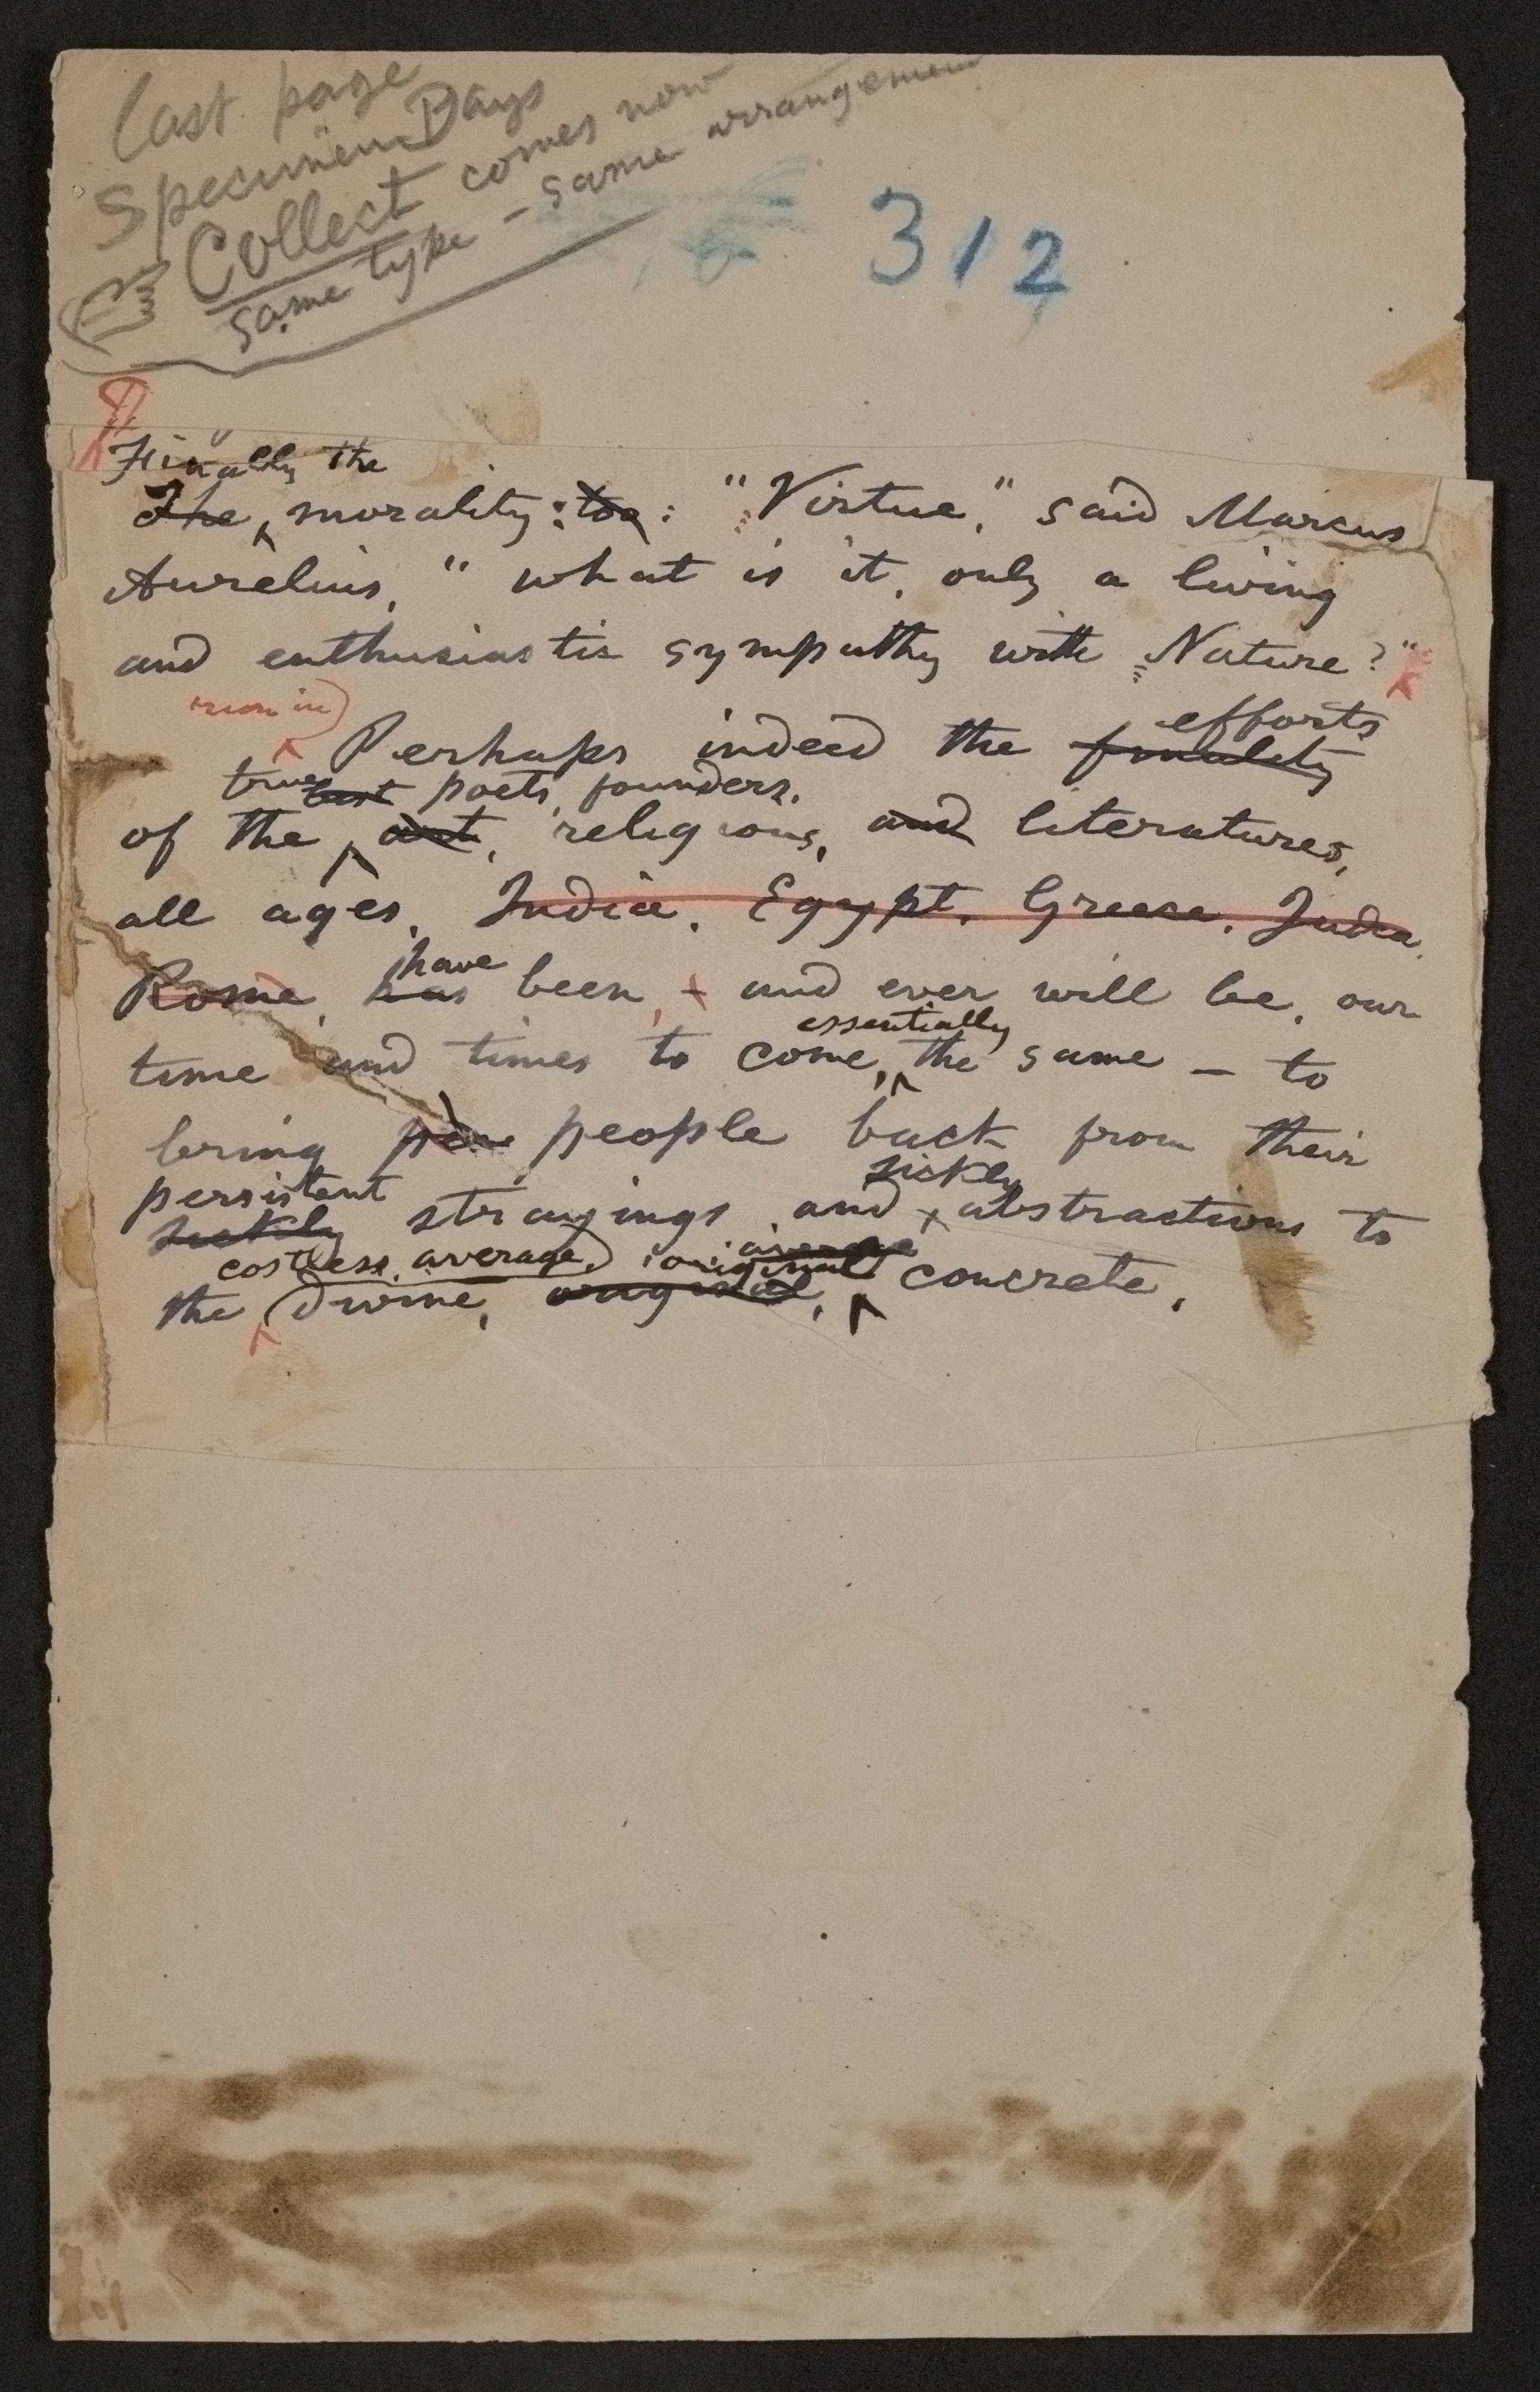 last page
Specimen Days
Collect comes now
same type - same arrangement
312
Finally the
The morality: too: "Virtue," said Marcus
Aurelius, "what is it, only a living
and enthusiastic sympathy with Nature?"
run in
efforts
Perhaps indeed the finality
true best poets, founders,
of the art, religions, and literatures,
all ages, India, Egypt, Greece, Judea,
have
Rome, has been, - and ever will be, our
essentially
time and times to come, the same — to
bring people back from their
sickly
persistent
sickly strayings and abstractions to
costless, average, original average
the divine, original, concrete.